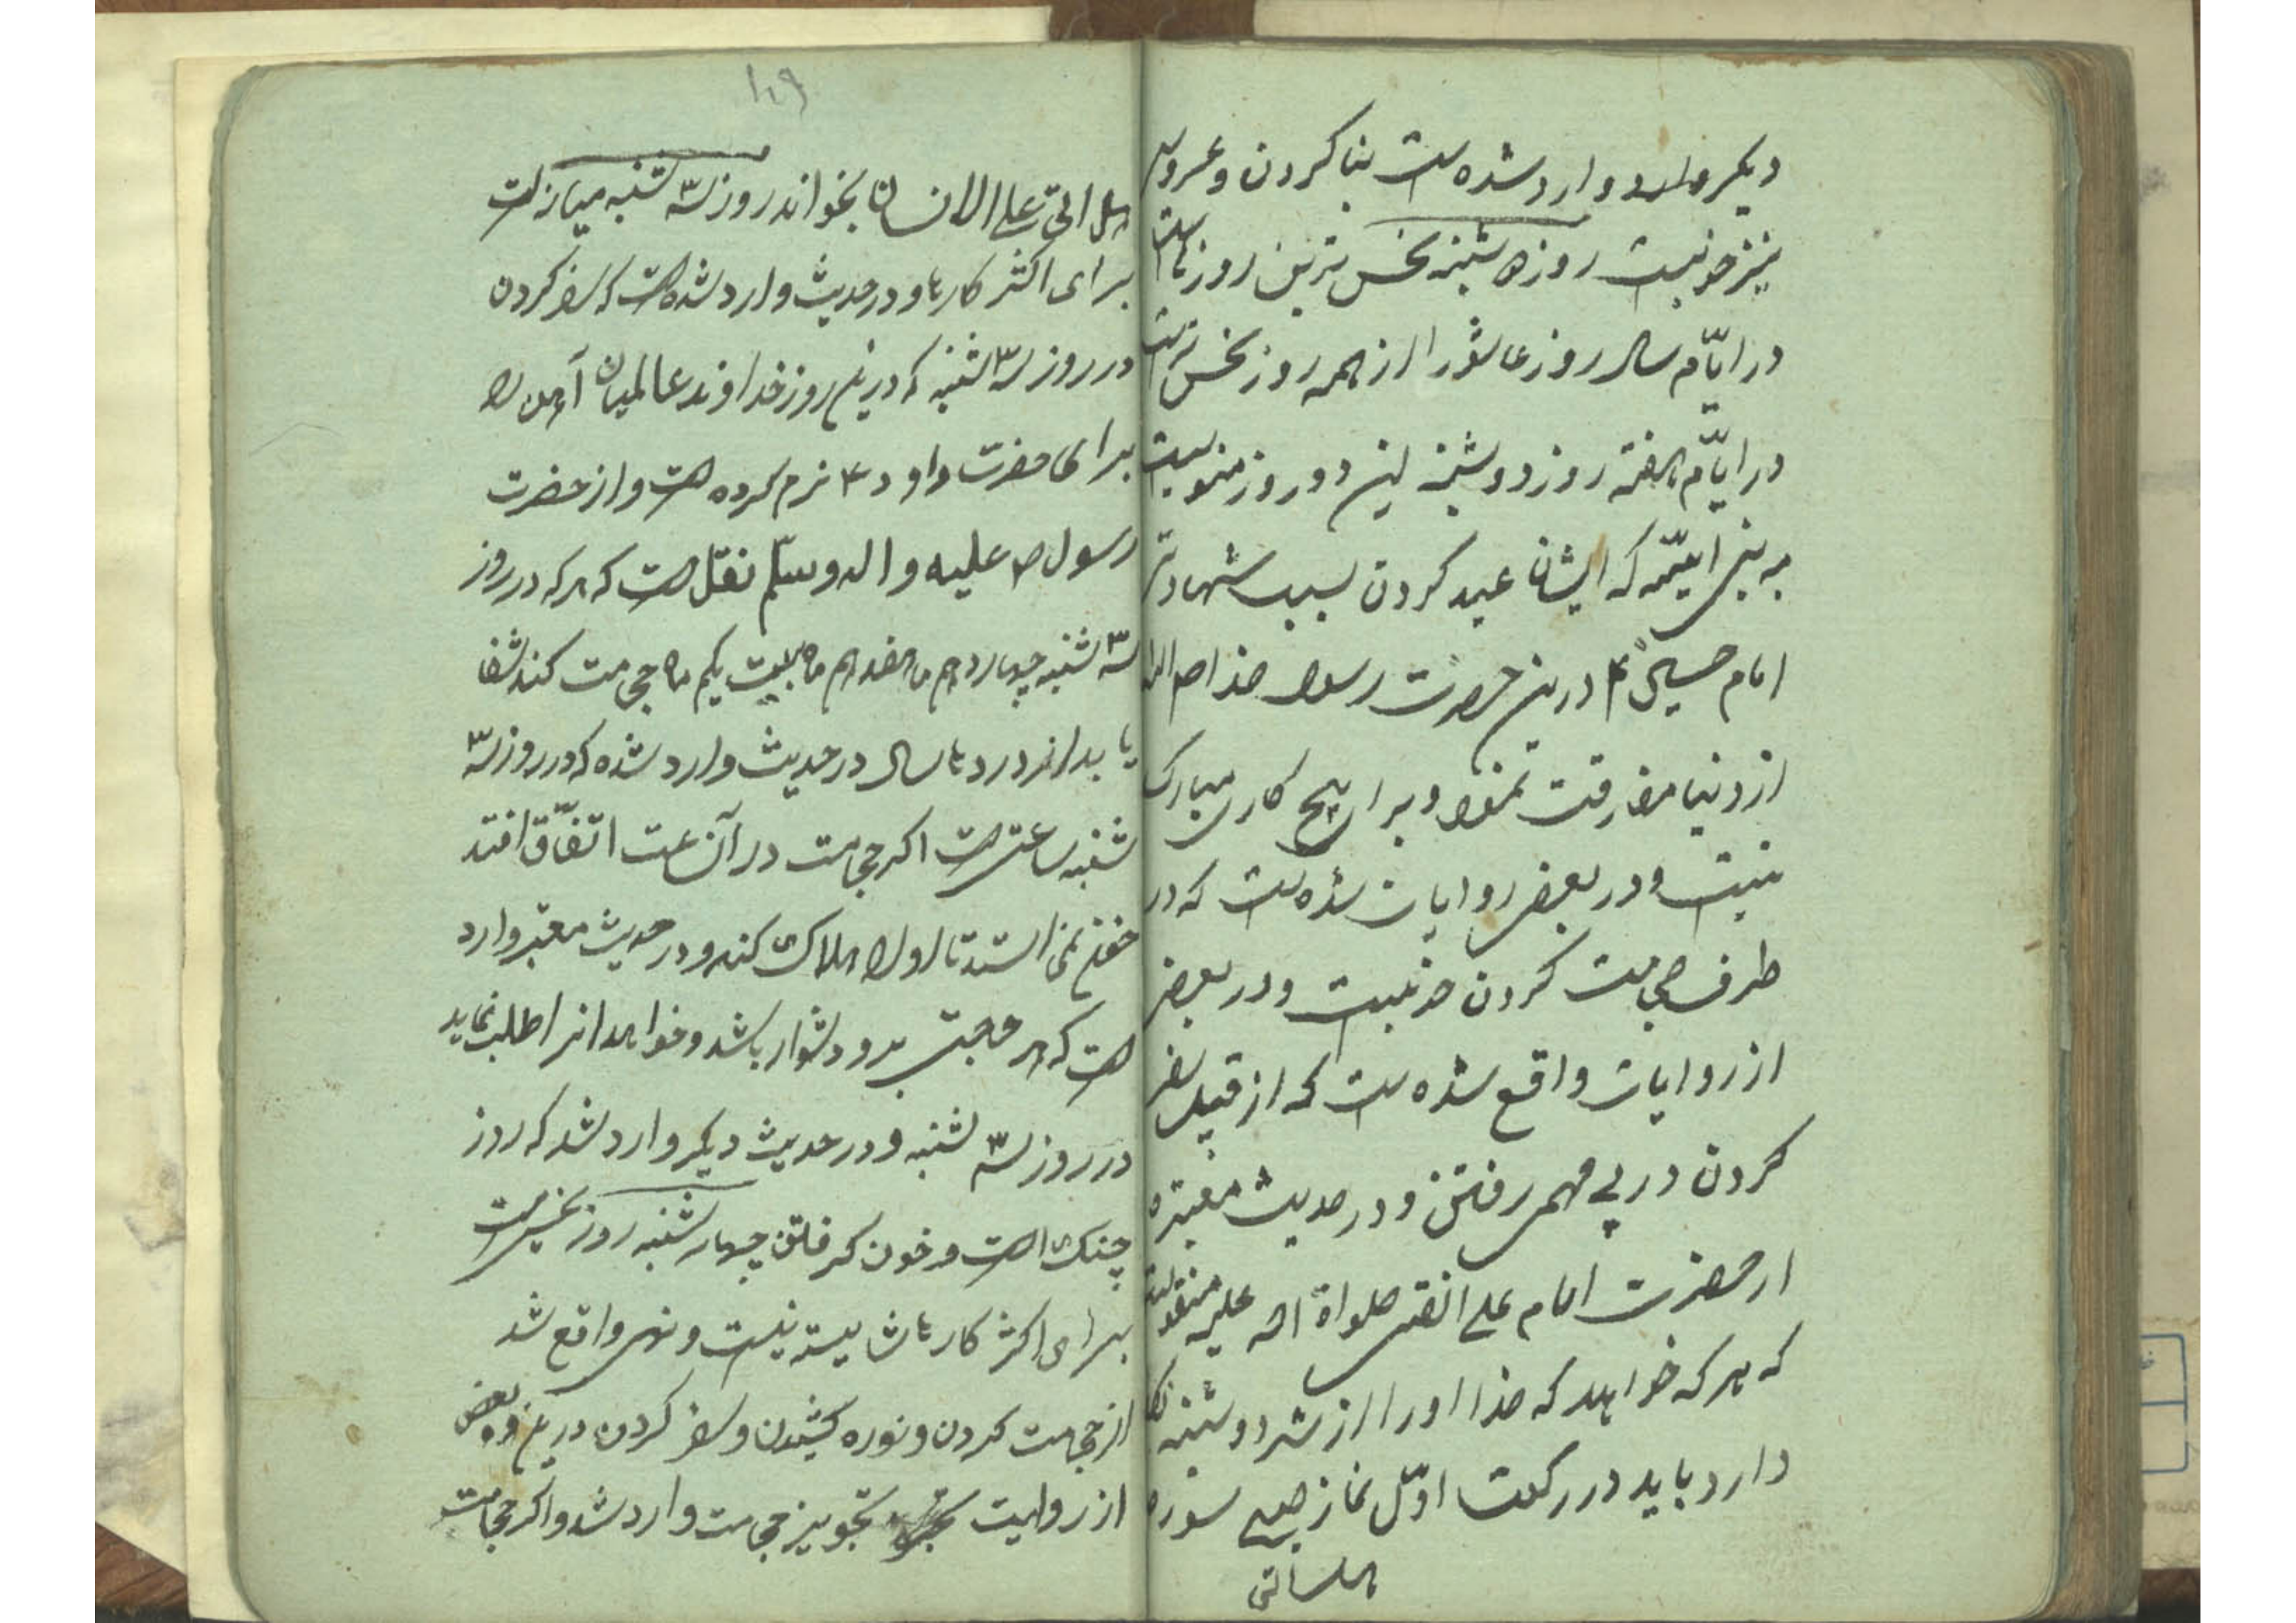 دیکر وارد شده است بنا کردن و عروسی
نیز خوبست روز دوشنبه نحس ترین روزهاست
در ایّام سال روز عاشورا از همه روز نحس ترست
در ایّام هفته روز دوشنبه این دو روز منسوبست
به بنی امیّه که ایشان عید کردن بسبب شهادت
امام حسین ع درین حضرت رسول خدا ص
از دنیا مفارقت نمود و برای هیچ کاری مبارک
نیست و در بعضی روایات شده است که در
طرف حجامت کردن خوبست و در بعضی
از روایات واقع شده است که از قبیل سفر
کردن در پی مهمی رفتن و در حدیث معتبره
از حضرت امام علی النقی صلواة الله علیه منقولست
که هر که خواهد که خدا او را از شر دوشنبه نکاه
دارد باید در رکعت اوّل نماز صبح سوره
هل اتی
۱۰۹
هل اتی علی الانسان بخواند روز سه شنبه میانه است
برای اکثر کارها و در حدیث وارد شده است که سفر کردن
در روز سه شنبه که درین روز خداوند عالمیان آهن را
برای حضرت داود ع نرم کرده است و از حضرت
رسول ص علیه و اله و سلّم نقل است که هر که در روز
سه شنبه چهاردهم ماه هفدهم ماه بیست یکم ماه حجامت کند شفا
یابد از دردها سال در حدیث وارد شده که در روز سه
شنبه ساعتی است اکر حجامت در آن ساعت اتفّاق افتد
خون نمی استد تا او را هلاک کند و در حدیث معتبر وارد
است که هر حاجتی بر او دشوار باشد و خواهد انرا طلب نماید
در روز سه شنبه و در حدیث دیکر وارد شد که روز
چنک است و خون کرفتن چهار شنبه روز نحس است
برای اکثر کارها شایسته نیست و نهی واقع شد
از حجامت کردن و نوره کشیدن و سفر کردن درین و در بعضی
از روایت تجویز حجامت وارد شد و اکر حجامت